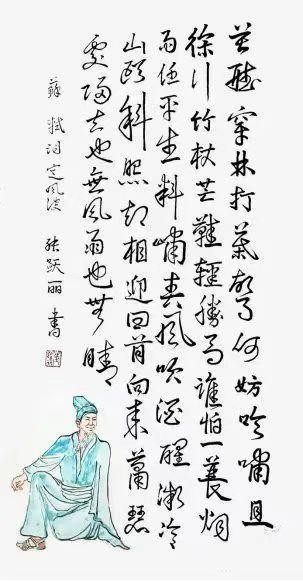 莫聽穿林打葉聲何妨吟嘯且
徐行竹杖芒鞋輕勝馬誰怕一蓑烟
雨任平生料峭春风吹酒醒微冷
山頭斜照却相迎回首向来蕭瑟
處歸去也無風雨也無晴
蘇軾词定风波 张跃丽書